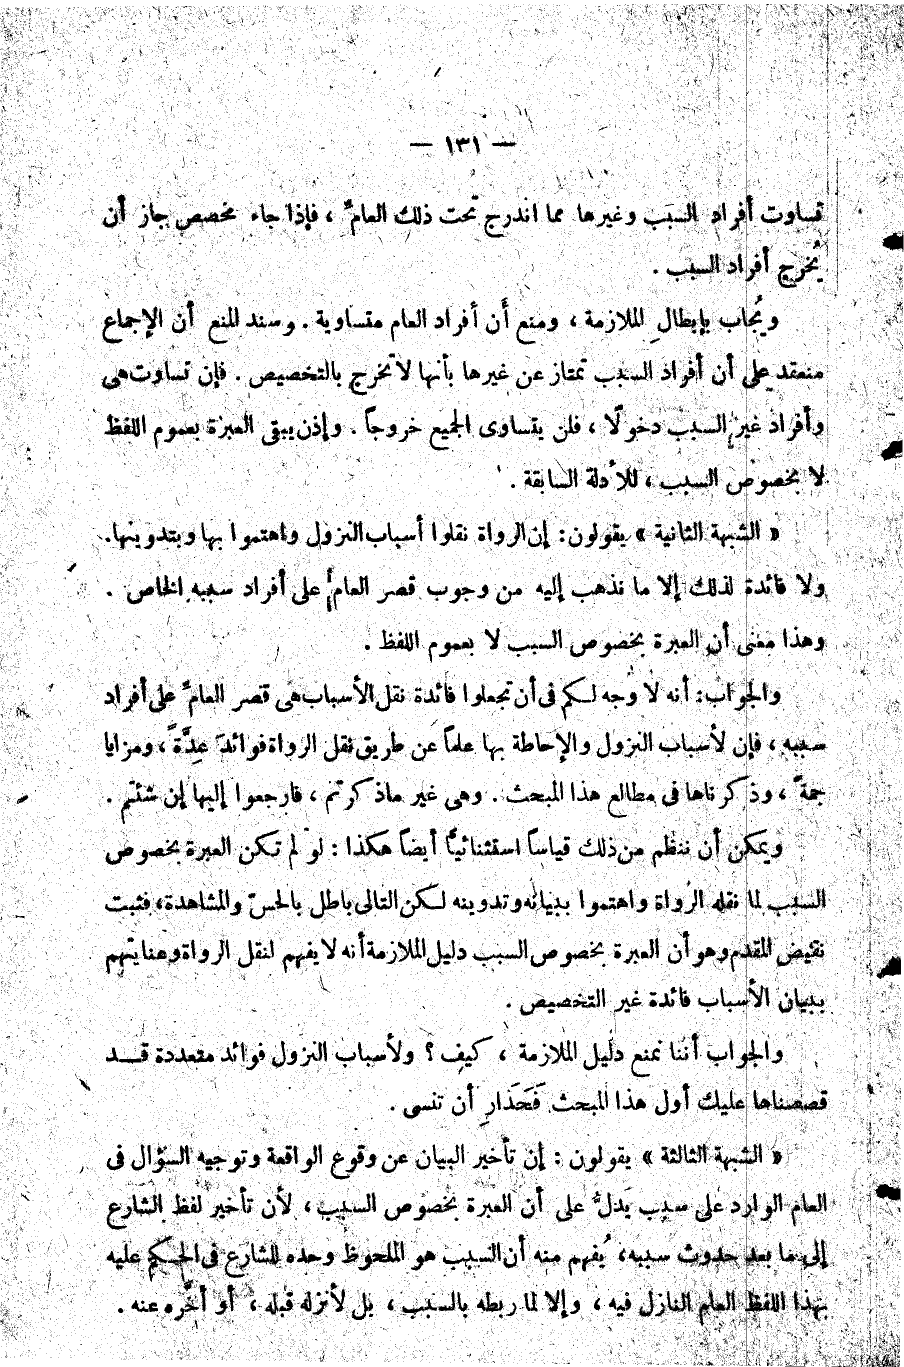 — ١٣١ —
تساوت أفراد السبب وغيرها مما اندرج تحت ذلك العامِّ ، فإذا جاء مخصص جاز أن
يُخرج أفراد السبب .
ويُجاب بإبطالِ الملازمة ، ومنع أَن أفراد العام متساوية . وسند المنع أن الإجماع
منعقد على أن أفراد السبب تمتاز عن غيرها بأنها لا تخرج بالتخصيص . فإن تساوت هى
وأفراد غير السبب دخولًا ، فلن يتساوى الجميع خروجاً . وإذن يبقى العبرة بعموم اللفظ
لا بخصوص السبب ، للأدلة السابقة .
« الشبهة الثانية » يقولون : إن الرواة نقلوا أسباب النزول واهتموا بها وبتدوينها.
ولا فائدة لذلك إلا ما نذهب إليه من وجوب قصر العامِّ على أفراد سببه الخاص .
وهذا معنى أن العبرة بخصوص السبب لا بعموم اللفظ .
والجواب : أنه لا وجه لكم فى أن تجعلوا فائدة نقل الأسباب هى قصر العامِّ على أفراد
سببه ، فإن لأسباب النزول والإحاطة بها علماً عن طريق نقل الرواة فوائدَ عِدَّةً ، ومزايا
جمةً ، وذكرناها فى مطالع هذا المبحث . وهى غير ماذكرتم ، فارجعوا إليها إن شئتم .
ويمكن أن ننظم من ذلك قياساً استثنائيًّا أيضاً هكذا : لو لم تكن العبرة بخصوص
السبب لما نقله الرواة واهتموا ببيانه وتدوينه لكن التالى باطل بالحسّ والمشاهدة، فثبت
نقيض المقدم وهو أن العبرة بخصوص السبب دليل الملازمة أنه لا يفهم لنقل الرواة وعنايتهم
ببيان الأسباب فائدة غير التخصيص .
والجواب أننا نمنع دليل الملازمة ، كيف ؟ ولأسباب النزول فوائد متعددة قد
قصصناها عليك أول هذا المبحث فَحَذَارِ أن تنسى .
« الشبهة الثالثة » يقولون : إن تأخير البيان عن وقوع الواقعة وتوجيه السؤال فى
العام الوارد على سبب يَدلُّ على أن العبرة بخصوص السبب ، لأن تأخير لفظ الشارع
إلى ما بعد حدوث سببه، يُفهم منه أن السبب هو الملحوظ وحده للشارع فى الحكم عليه
بهذا اللفظ العام النازل فيه ، وإلا لما ربطه بالسبب ، بل لأنزله قبله ، أو أخَّره عنه .